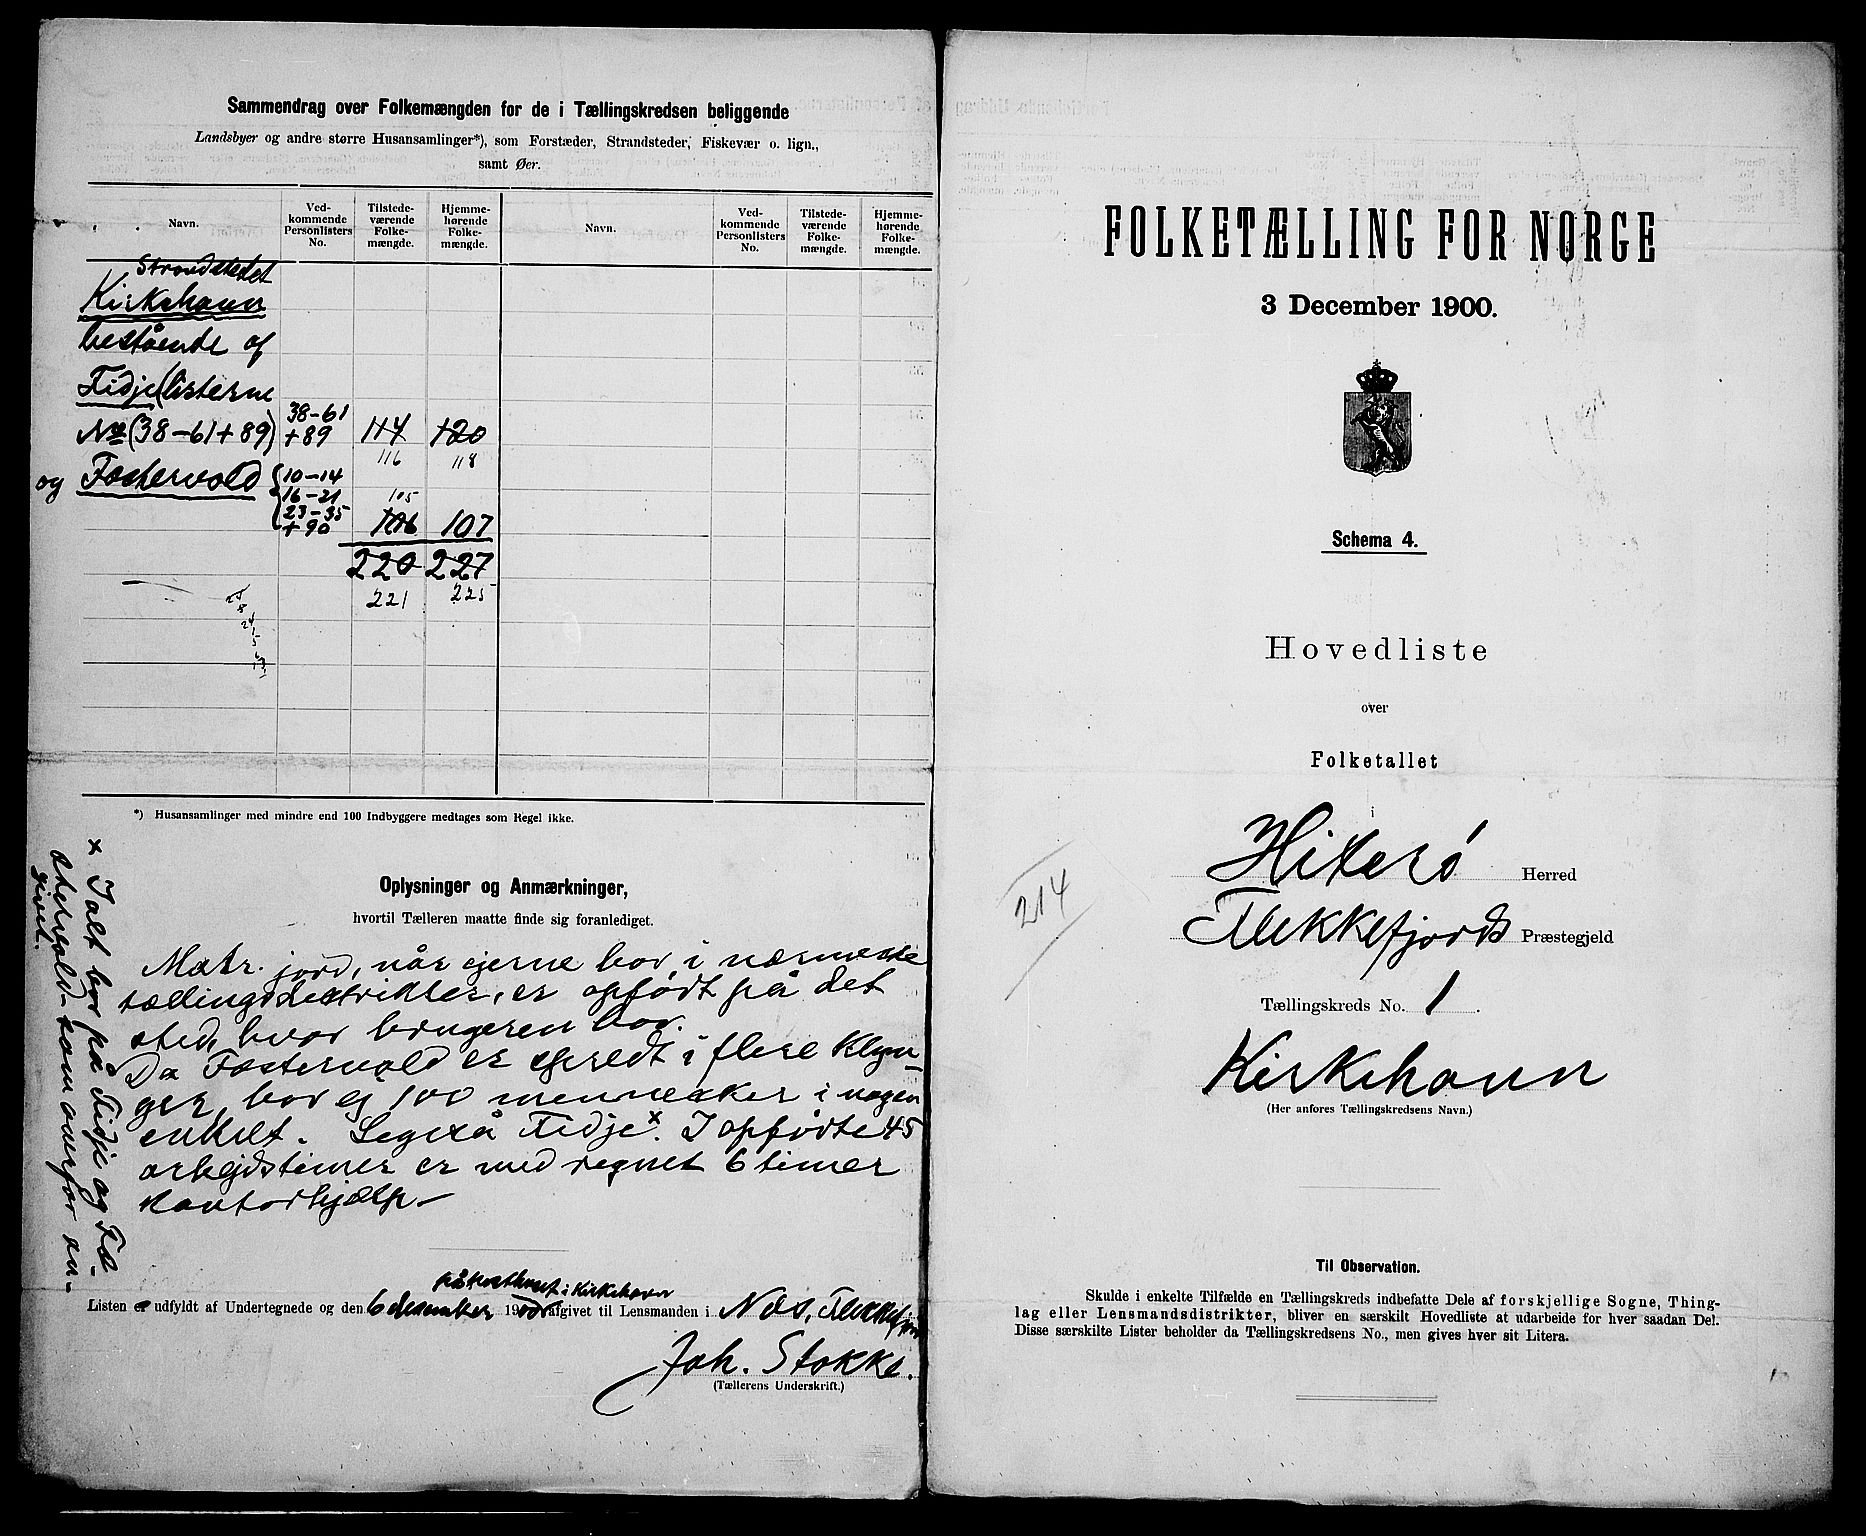 Sammendrag over Folkemængden for de i Tællingskredsen beliggende
Landsbyer og andre større Husansamlinger*), som Forstæder, Strandsteder, Fiskevær o. lign.,
samt Øer.
Navn.
Ved-
kommende
Personlisters
No.
Tilstede-
værende
Folke-
mængde.
Hjemme-
hørende
Folke-
mængde.
Navn.
Ved-
kommende
Personlisters
No.
Tilstede-
værende
Folke-
mængde.
Hjemme-
hørende
Folke-
mængde.
Strandstedet
Kirkehavn
bestående af
Fidje (listerne
No (38-61+89) 38-61 +89 114 120
116 118
og Fæstervold 10-14
16-21 105
23-35
+90 106 107
220 227
221 225
*) Husansamlinger med mindre end 100 Indbyggere medtages som Regel ikke.
Oplysninger og Anmærkninger,
hvortil Tælleren maatte finde sig foranlediget.
Matr. jord, når ejerne bor i nærmeste
tællingsdistrikter, er opført på det
sted, hvor brugeren bor.
Da Fæstervold er spredt i flere klyn-
ger, bor ej 100 mennesker i nogen
enkelt. Ligeså Fidje x. I opførte 45
arbejdstimer er med regnet 6 timer
kontorhjælp
x I alt bor på Fidje og Fæ-
stervold som ovenfor an-
givet.
på posthuset i Kirkehavn
Listen er udfyldt af Undertegnede og den 6 desember 1900 afgivet til Lensmanden i Næs, Flekkefjord
Joh. Stokke.
(Tællerens Underskrift.)
FOLKETÆLLING FOR NORGE
3 December 1900.
Schema 4.
Hovedliste
over
Folketallet
i
Hiterø Herred
Flekkefjords Præstegjeld
214
Tællingskreds No. 1.
Kirkehavn
(Her anføres Tællingskredsens Navn.)
Til Observation.
Skulde i enkelte Tilfælde en Tællingskreds indbefatte Dele af forskjellige Sogne, Thing-
lag eller Lensmandsdistrikter, bliver en særskilt Hovedliste at udarbeide for hver saadan Del.
Disse særskilte Lister beholder da Tællingskredsens No., men gives hver sit Litera.